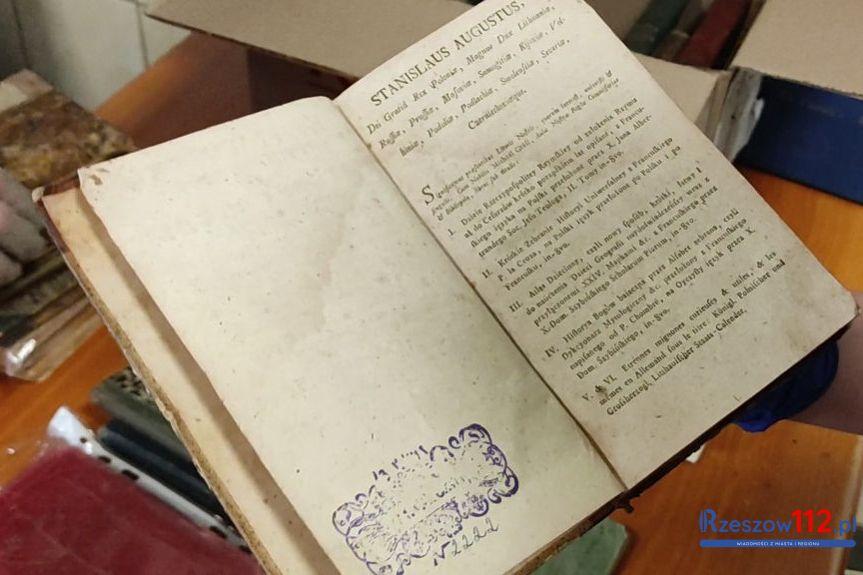 STANISLAUS AUGUSTUS,
Dei Gratiâ Rex Poloniæ, Magnus Dux Lithuaniæ,
Russiæ, Prussiæ, Masoviæ, Samogitiæ, Kijoviæ, Vol-
hiniæ, Podoliæ, Podlachiæ, Smolensciæ, Severiæ,
Czerniechoviæque.
I. Dzieie Rzeczypospolitey Rzymskiey od założenia Rzymu
aż do Cesarzów krótko porządkiem lat opisane, z Francu-
skiego ięzyka na Polski przełożone przez X. Jana Alber-
trandego Soc. Jesu Teologa, II. Tomy in-8vo.
II. Krótkie Zebranie Historyi Uniwersalney z Francuskiego
P. la Croza, na Polski ięzyk przełożone po Polsku i po
Francusku, in-8vo.
III. Atlas Dziecinny, czyli nowy sposób, krótki, łatwy i
do nauczenia Dzieci Geografii nayдoświadczeńszy wraz z
przyłączonemi XXIV. Mappami &c. z Francuskiego przez
X. Dom. Szybińskiego Scholarum Piarum, in-8vo.
IV. Historya Bogów baieczna przez Alfabet zebrana, czyli
Dykcyonarz Mytologiczny &c. przełożony z Francuskiego
napisanego od P. Chompré, na Oyczysty ięzyk przez X.
Dom. Szybińskiego, in-8vo.
V. & VI. Etrennes mignones curieuses & utiles, & les
mêmes en Allemand sous le titre: Königl. Polnischer und
Großherzogl. Litthauischer Staats-Calender,
N 2222
Rzeszow112.pl
WIADOMOŚCI Z MIASTA I REGIONU